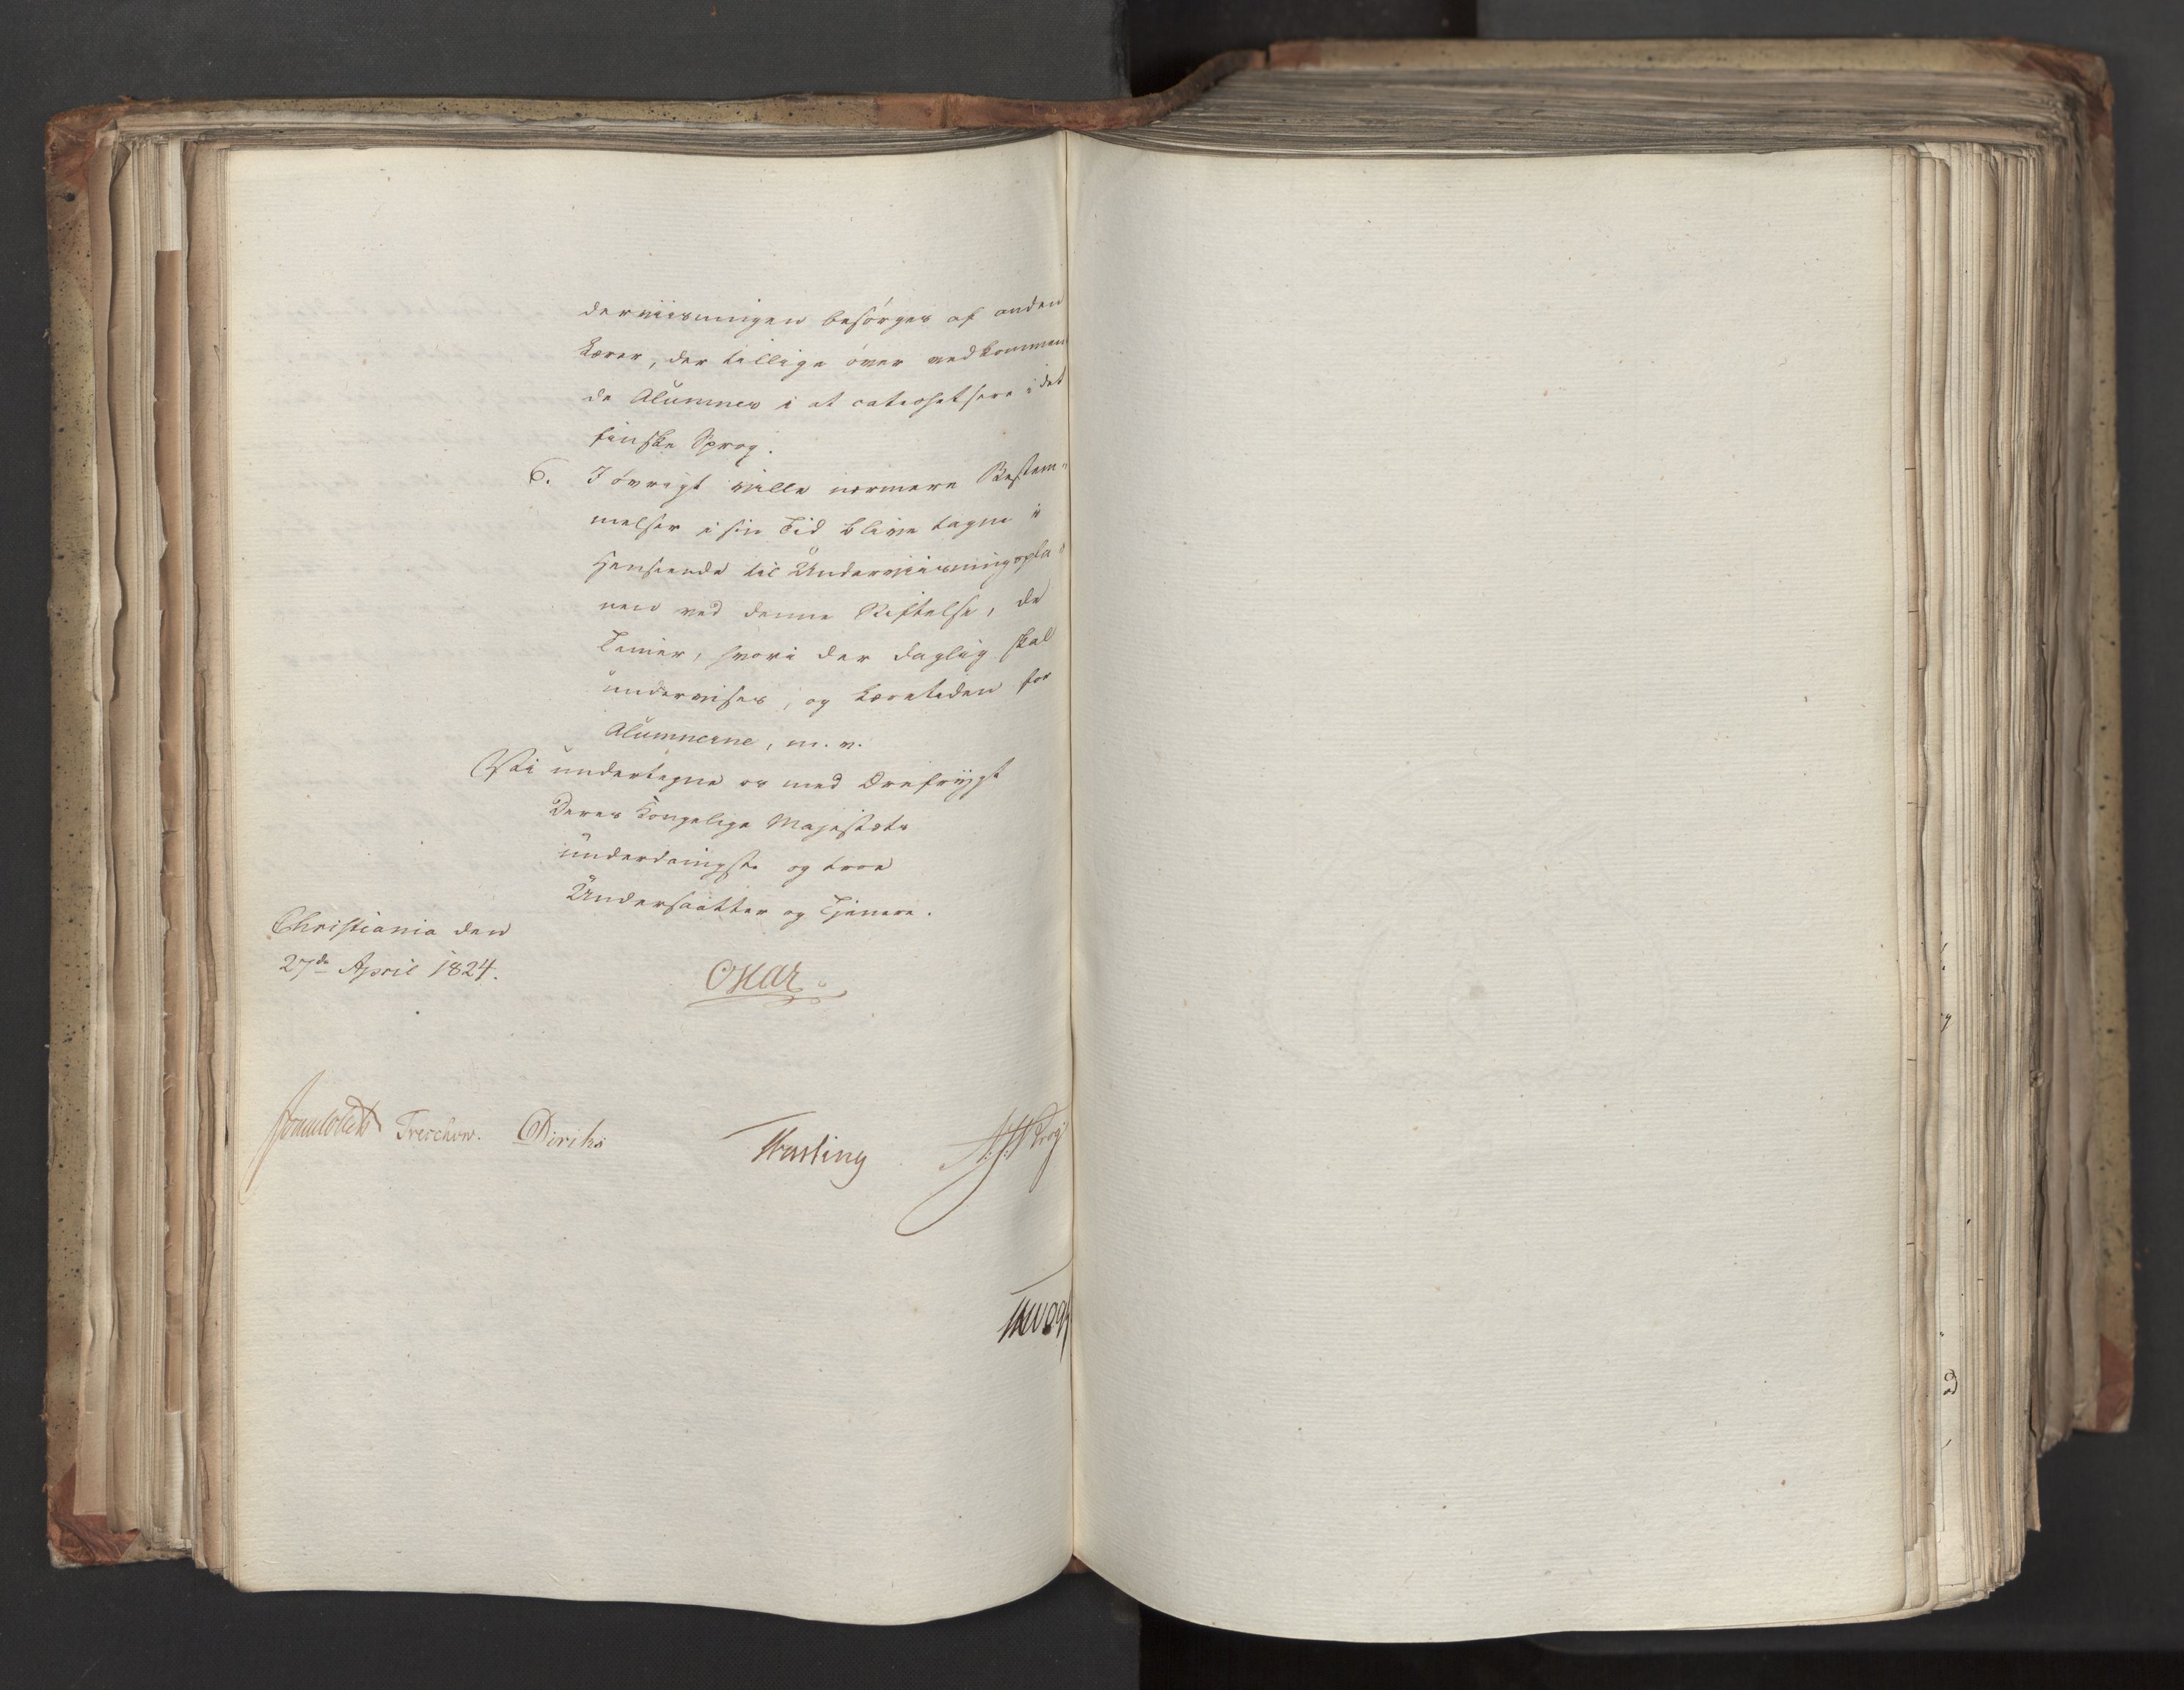 derviisningen besørges af anden
Lærer, der tillige øver vedkommen
de Alumner i at catechetisere i det
finske Sprog.
6. I øvrigt ville nærmere Bestem-
melser i sin Tid blive tagne i
Henseende til Underviisningspla-
nen ved denne Stiftelse, de
Timer, hvori der daglig skal
undervises, og Læretiden for
Alumnerne, m. v.
Vi undertegne os med Ærefrygt
Deres Kongelige Majestæts
underdanigste og troe
Undersaatter og Tjenere.
Christiania den
27de April 1824.
Oscar
Sommerfeldt Treschow. Diriks Fasting